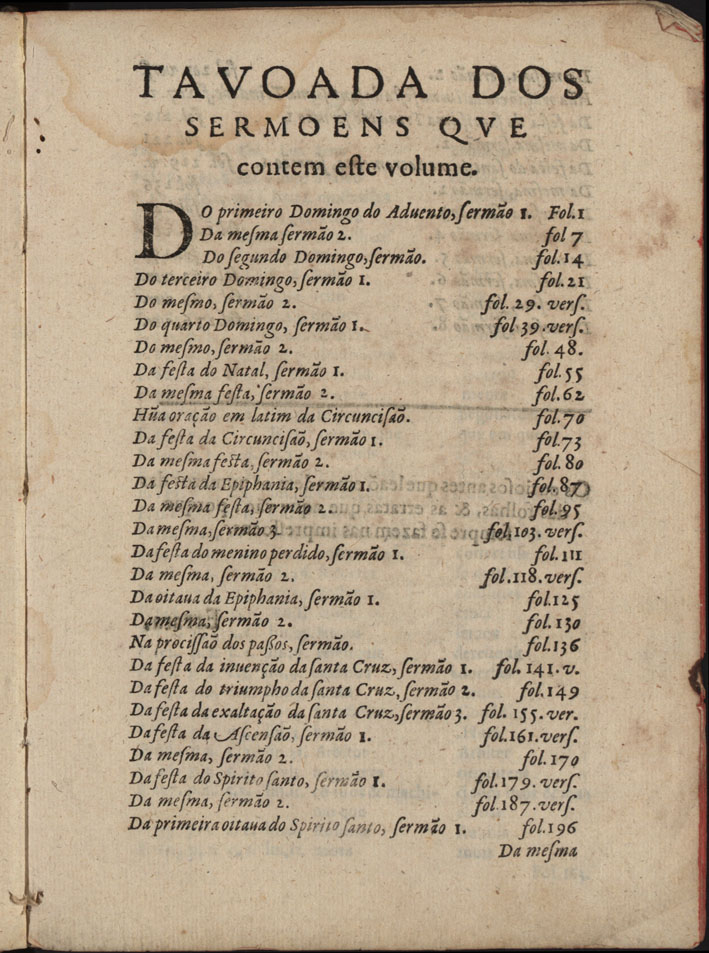 TAVOADA DOS
SERMOENS QVE
contem eſte volume.
DO primeiro Domingo do Aduento, ſermão 1. Fol.1
Da meſma ſermão 2. fol 7
Do ſegundo Domingo, ſermão. fol.14
Do terceiro Domingo, ſermão 1. fol.21
Do meſmo, ſermão 2. fol. 29. verſ.
Do quarto Domingo, ſermão 1. fol 39.verſ.
Do meſmo, ſermão 2. fol. 48.
Da feſta do Natal, ſermão 1. fol.55
Da meſma feſta, ſermão 2. fol.62
Hũa oração em latim da Circunciſaõ. fol.70
Da feſta da Circunciſaõ, ſermão 1. fol.73
Da meſma feſta, ſermão 2. fol.80
Da feſta da Epiphania, ſermão 1. fol.87
Da meſma feſta, ſermão 2. fol.95
Da meſma, ſermão 3 fol.103.verſ.
Da feſta do menino perdido, ſermão 1. fol.111
Da meſma, ſermão 2. fol.118.verſ.
Da oitaua da Epiphania, ſermão 1. fol.125
Da meſma, ſermão 2. fol.130
Na prociſſaõ dos paßos, ſermão. fol.136
Da feſta da inuenção da santa Cruz, ſermão 1. fol.141.v.
Da feſta do triumpho da ſanta Cruz, ſermão 2. fol.149
Da feſta da exaltação da santa Cruz, ſermão 3. fol. 155.ver.
Da feſta da Aſcenſaõ, ſermão 1. fol.161.verſ.
Da meſma, ſermão 2. fol.170
Da feſta do Spirito ſanto, ſermão 1. fol.179.verſ.
Da meſma, ſermão 2. fol.187.verſ.
Da primeira oitaua do Spirito ſanto, ſermão 1. fol.196
Da meſma